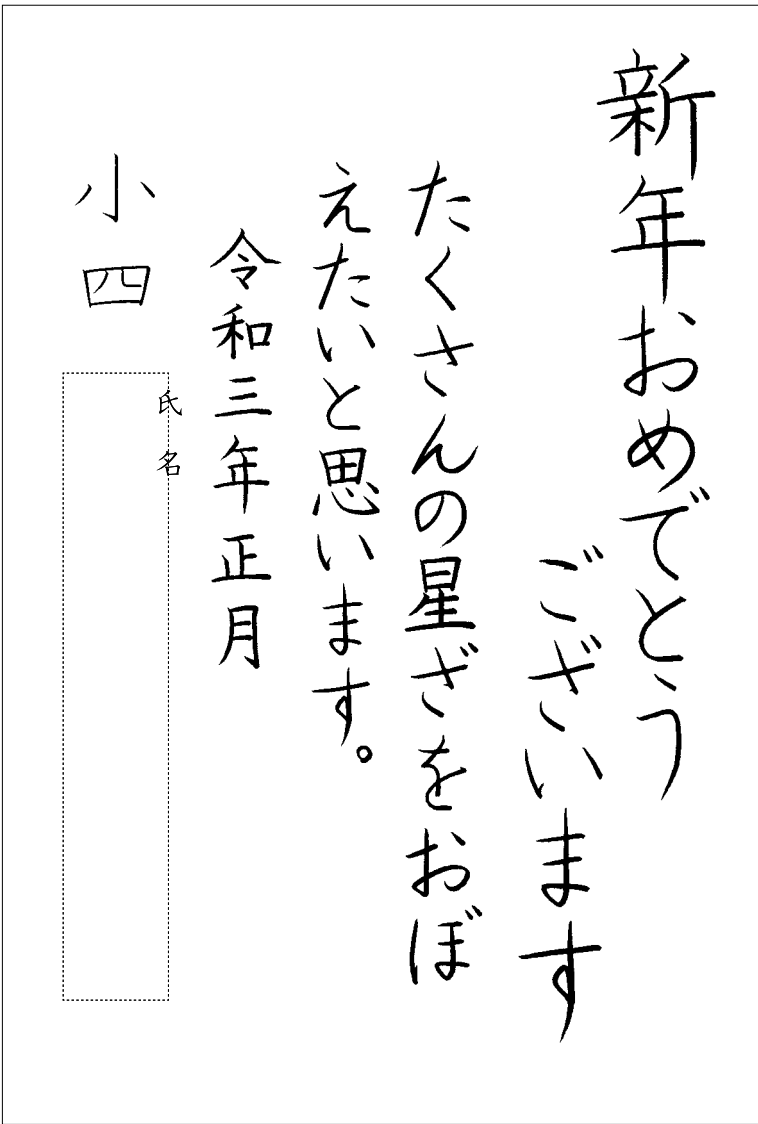 新年おめでとう
ございます
たくさんの星ざをおぼ
えたいと思います。
令和三年正月
小四
氏名